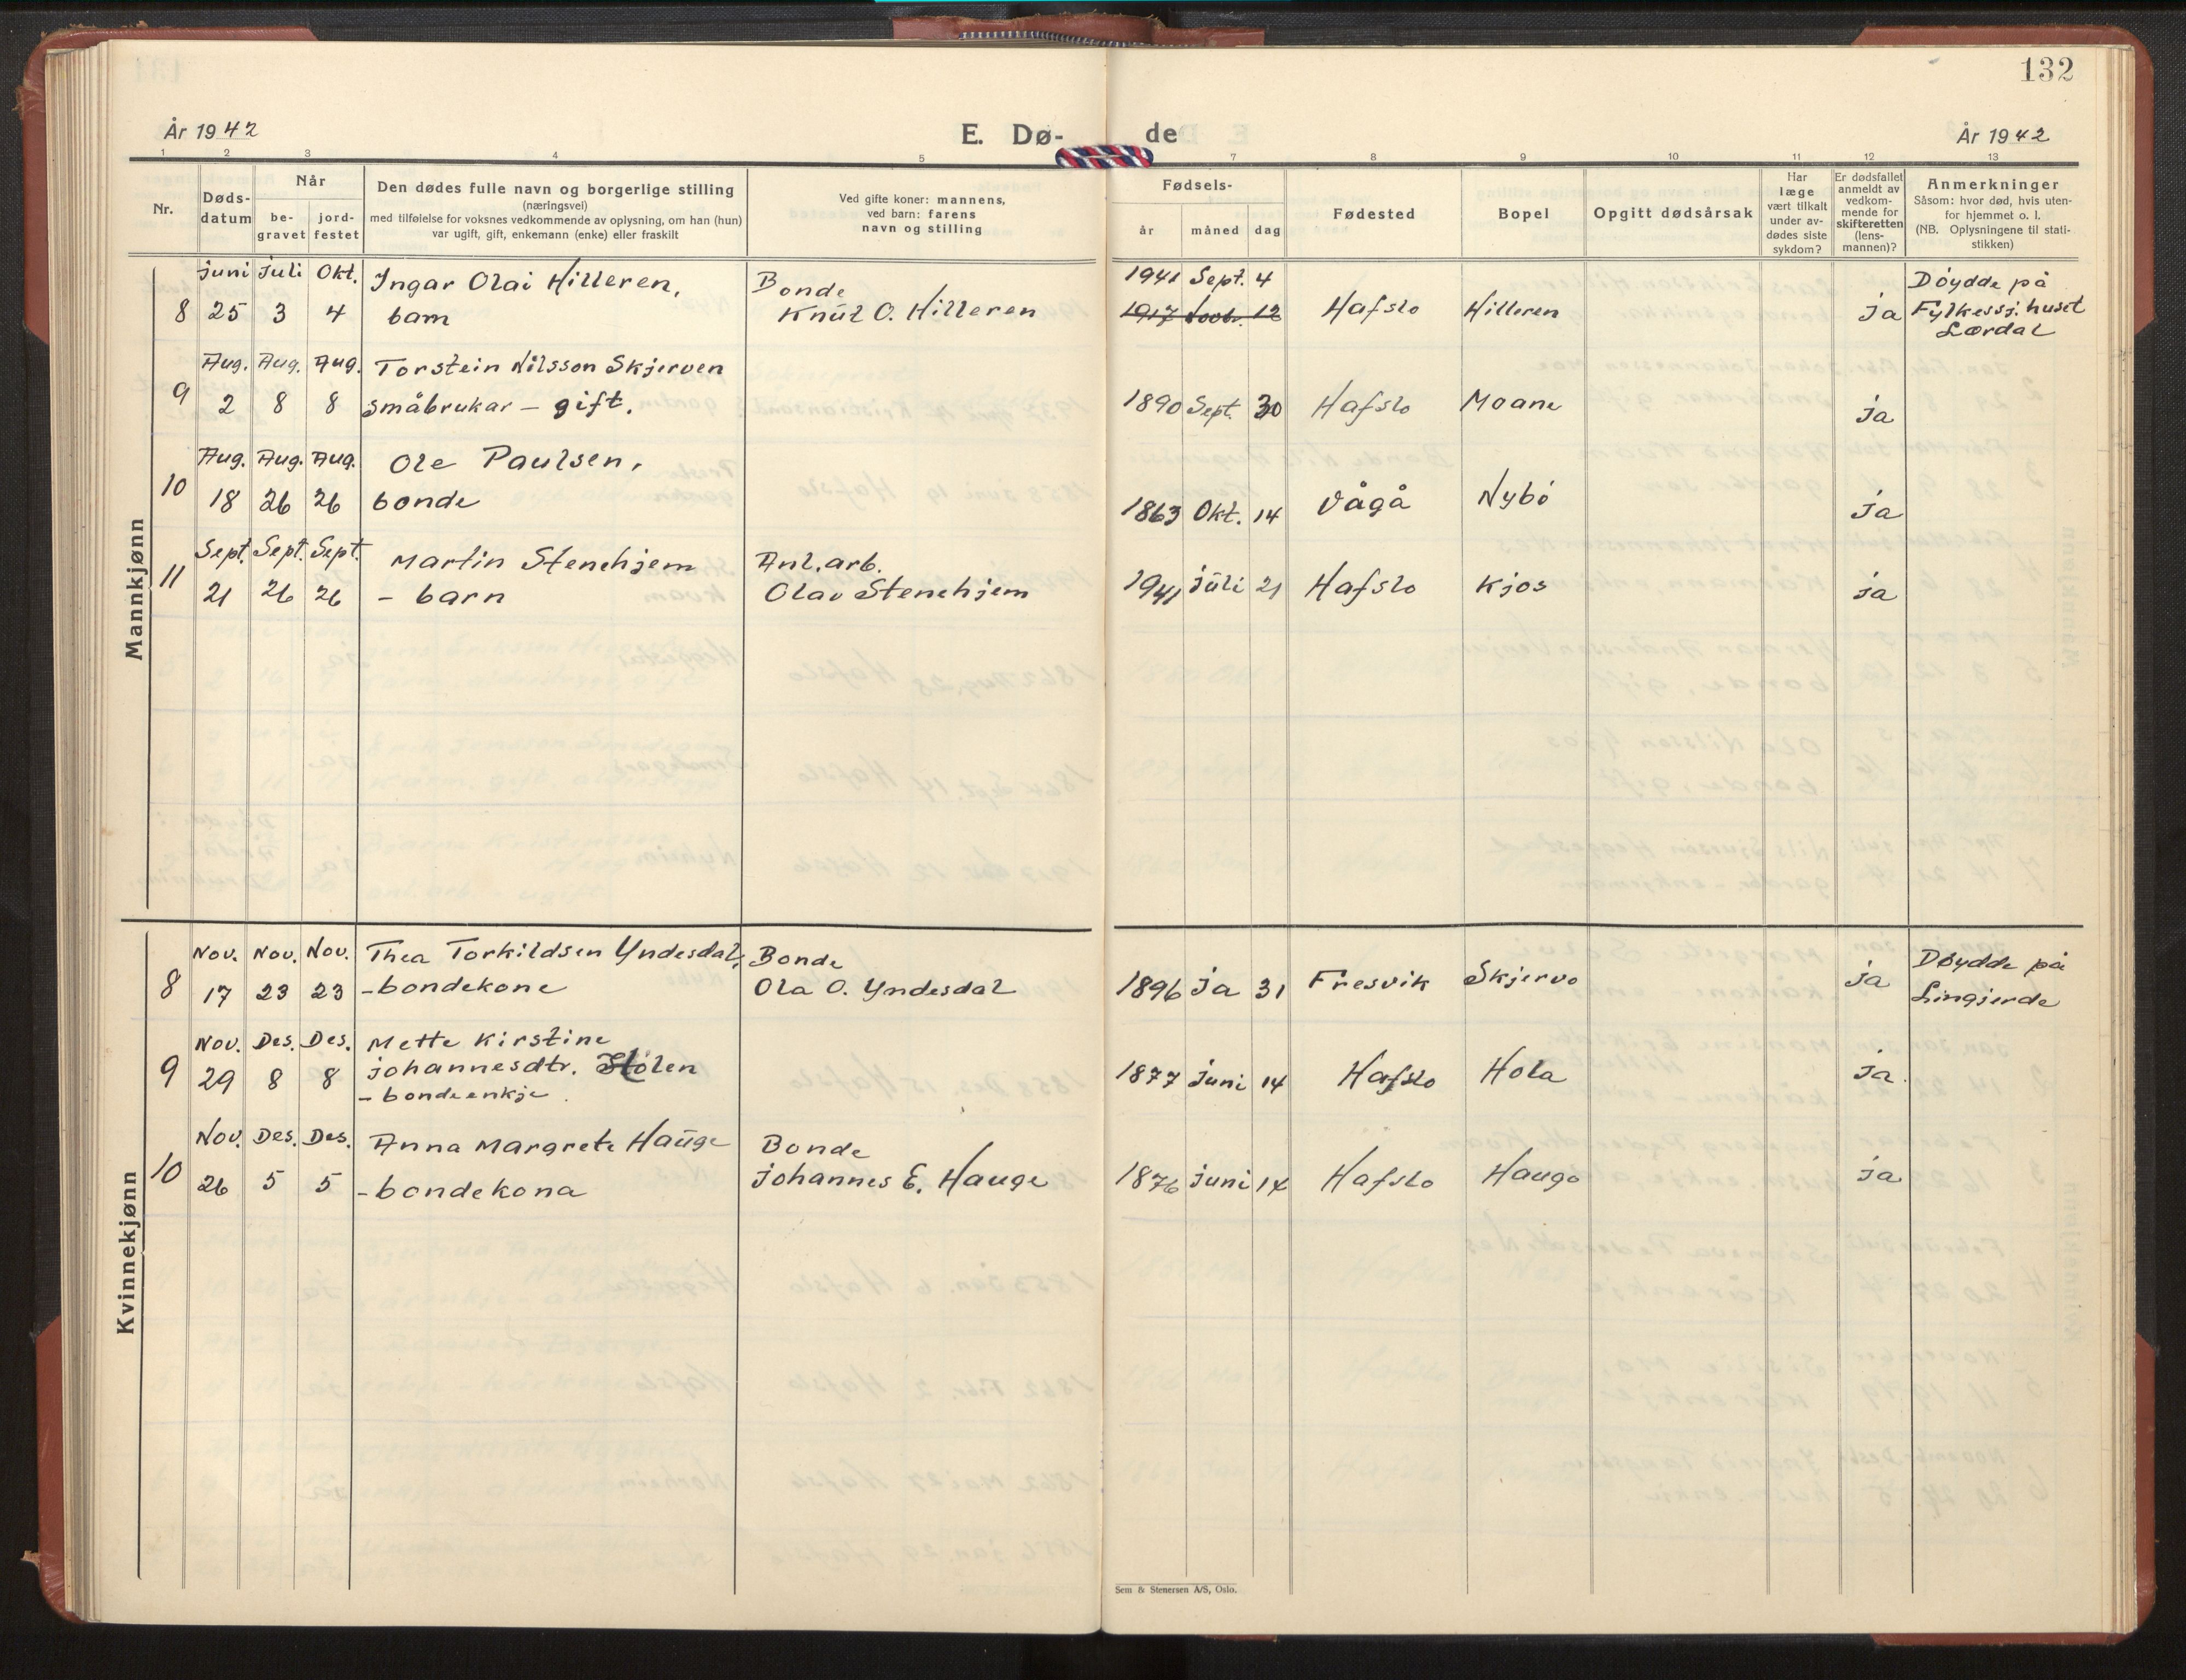 132
År 1942
E. Dø-
de
År 1942
1 2 3 4 5 7 8 9 10 11 12 13
Nr.
Døds-
datum
Når
be-
gravet
jord-
festet
Den dødes fulle navn og borgerlige stilling
(næringsvei)
med tilføielse for voksnes vedkommende av oplysning, om han (hun)
var ugift, gift, enkemann (enke) eller fraskilt
Ved gifte koner: mannens,
ved barn: farens
navn og stilling
Fødsels-
år måned dag
Fødested
Bopel
Opgitt dødsårsak
Har
læge
vært tilkalt
under av-
dødes siste
sykdom?
Er dødsfallet
anmeldt av
vedkom-
mende for
skifteretten
(lens-
mannen)?
Anmerkninger
Såsom: hvor død, hvis uten-
for hjemmet o. l.
(NB. Oplysningene til stati-
stikken)
Mannkjønn
juni Juli Okt. Ingar Olai Hilleren, Bonde 1941 Sept. 4 Døydde på
8 25 3 4 barn Knut O. Hilleren 1917 12 Hafslo Hilleren ja Fylkessj. huset
Lærdal
Aug. Aug. Aug. Torstein Nilsson Skjerven
9 2 8 8 småbrukar – gift. 1890 Sept. 30 Hafslo Moane ja
Aug. Aug. Aug. Ole Paulsen,
10 18 26 26 bonde 1863 Okt. 14 Vågå Nybø ja
Sept. Sept. Sept. Martin Stenehjem Anl. arb.
11 21 26 26 – barn Olav Stenehjem 1941 juli 21 Hafslo Kjos ja
Kvinnekjønn
Nov. Nov. Nov. Thea Torkildsen Yndesdal, Bonde Døydde på
8 17 23 23 – bondekone Ola O. Yndesdal 1896 ja 31 Fresvik Skjervo ja Lingjerde
Nov. Des. Des. Mette Kirstine
9 29 8 8 Johannesdtr. Hølen 1877 juni 14 Hafslo Hola ja.
– bondeenkje.
Nov. Des. Des. Anna Margrete Hauge Bonde
10 26 5 5 – bondekona Johannes E. Hauge 1876 juni 14 Hafslo Haugo ja
Sem & Stenersen A/S, Oslo.